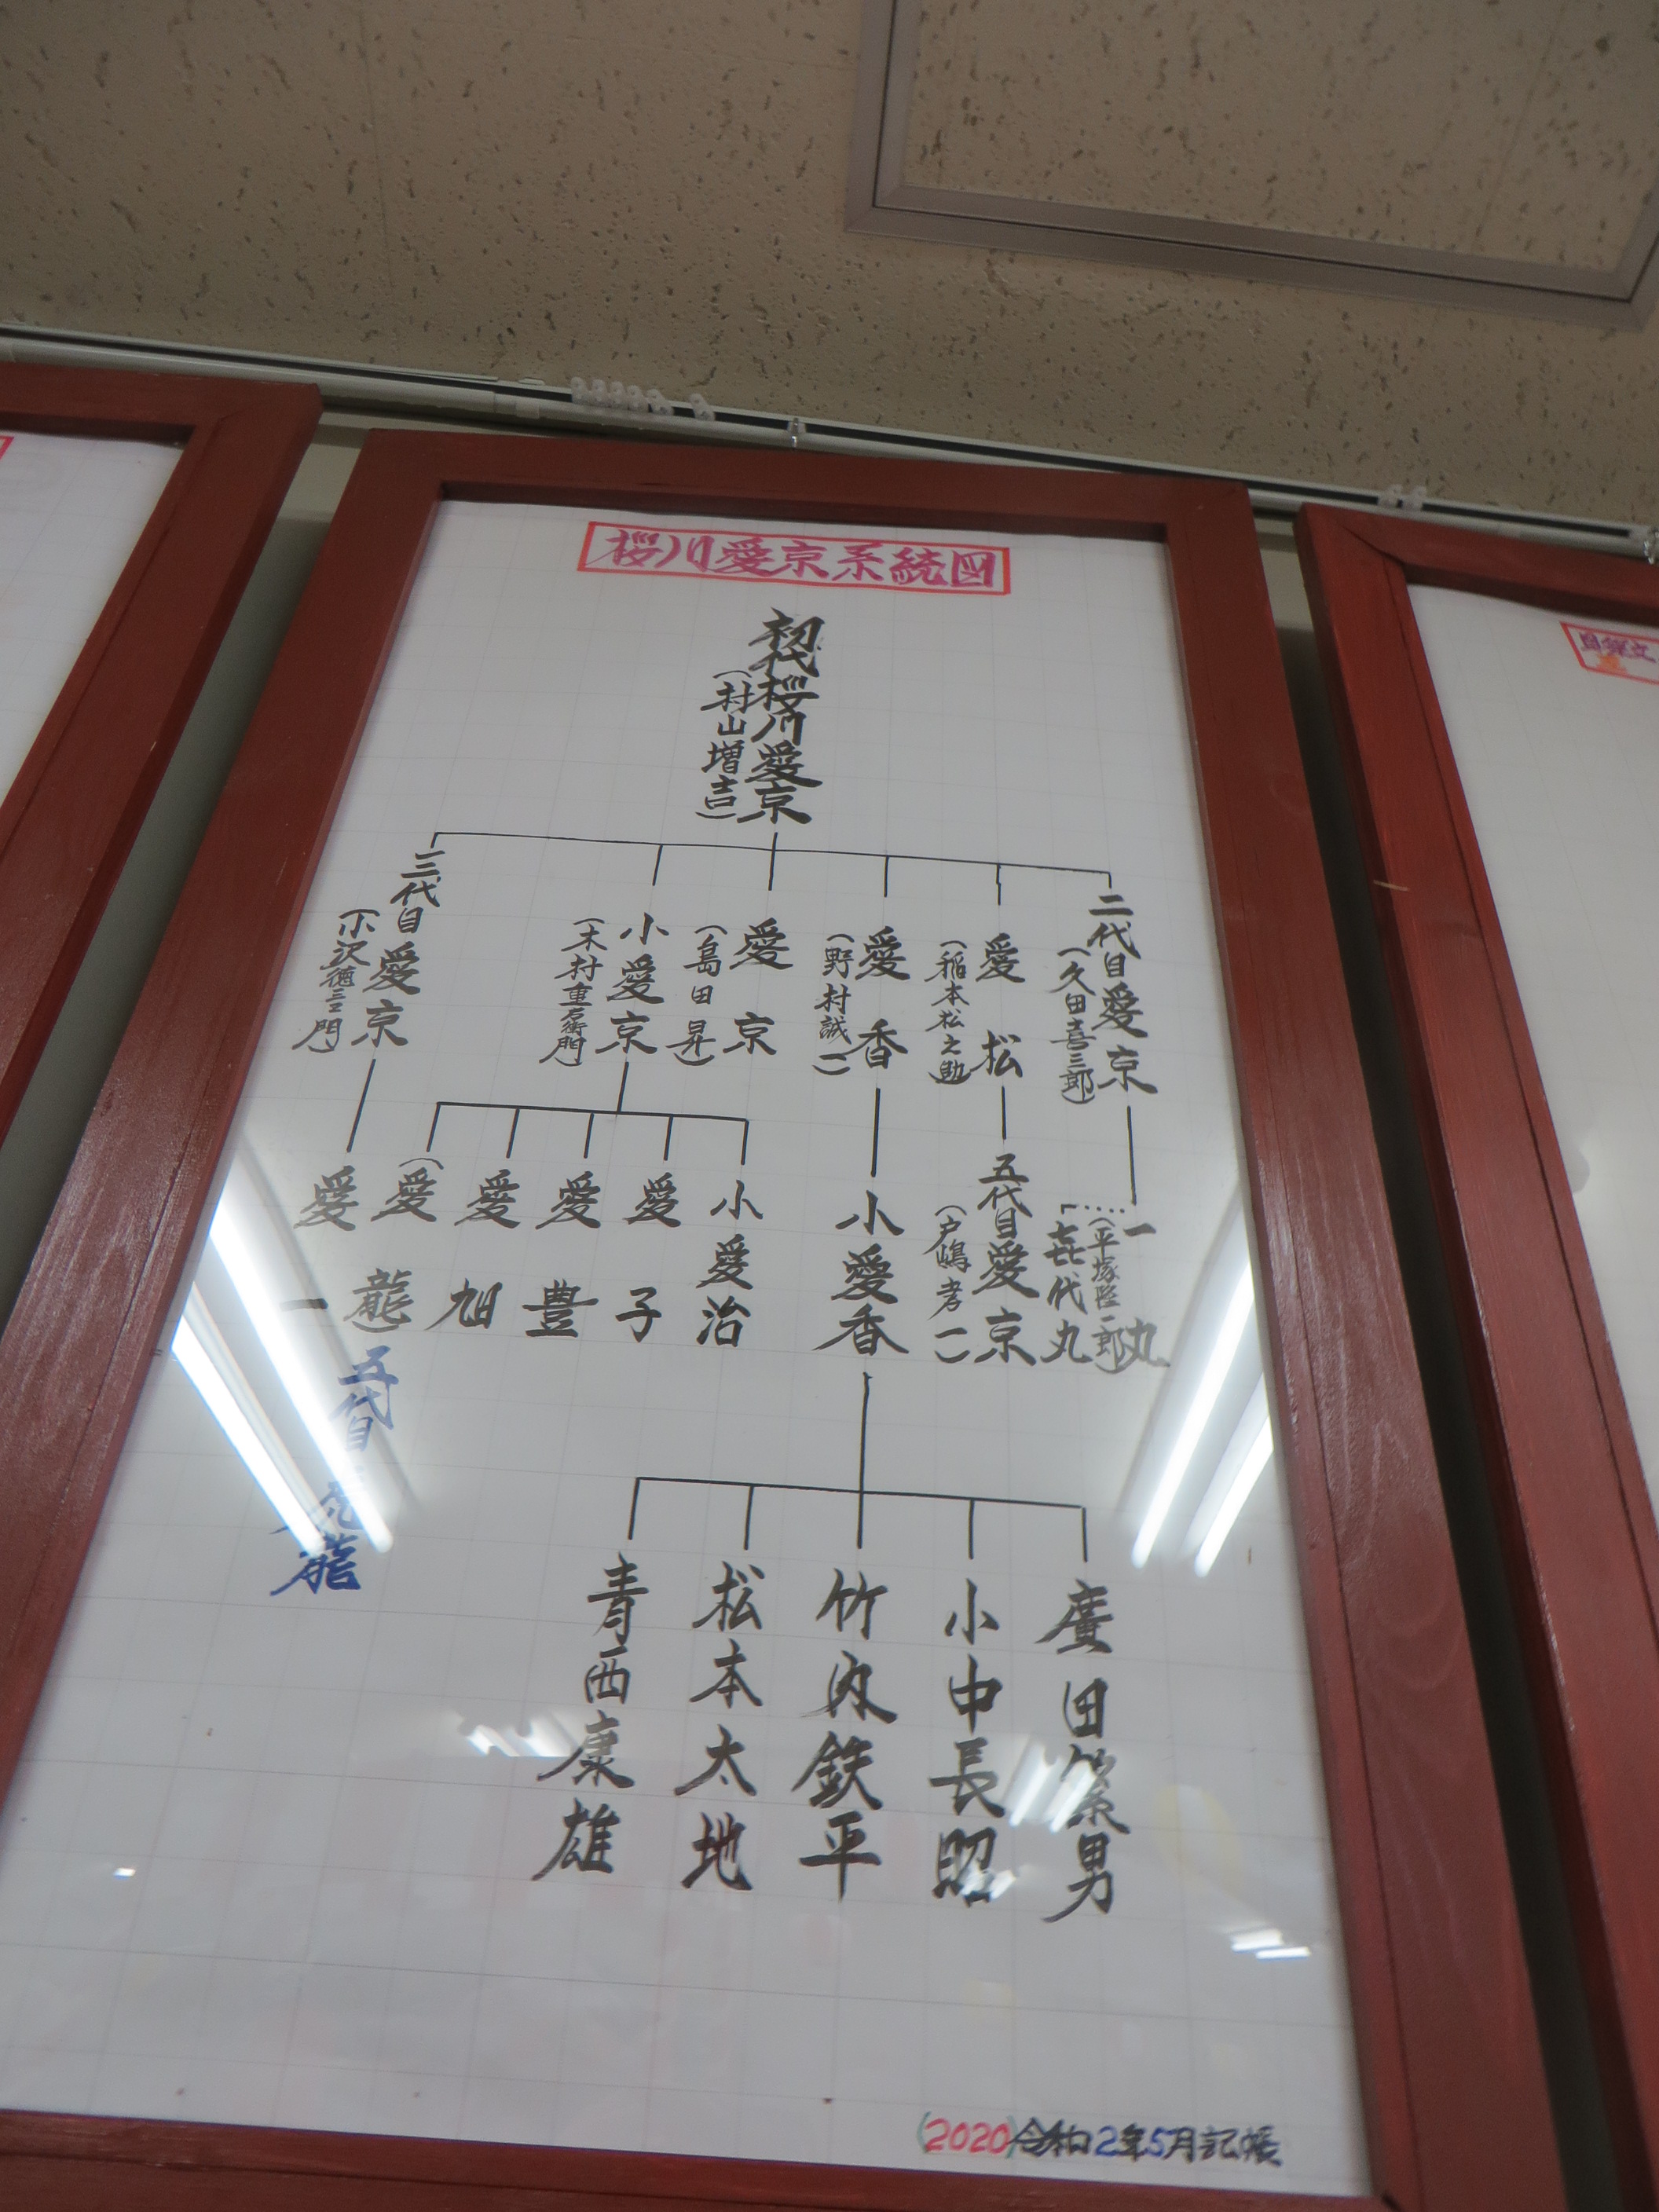 桜川愛京系統図
初代桜川愛京
(村山増吉)
二代目愛京
(久田喜三郎)
愛松
(稲本松之助)
愛香
(野村誠一)
愛京
(島田昇)
小愛京
(木村重右衛門)
三代目愛京
一丸
(平塚 一郎)
喜代丸
五代目愛京
(戸嶋孝一)
小愛香
小愛治
愛子
愛豊
愛旭
(愛龍)
愛一
五代目
龍
廣田繁男
小中長昭
竹内鉄平
松本太地
青西康雄
(2020)令和2年5月記帳